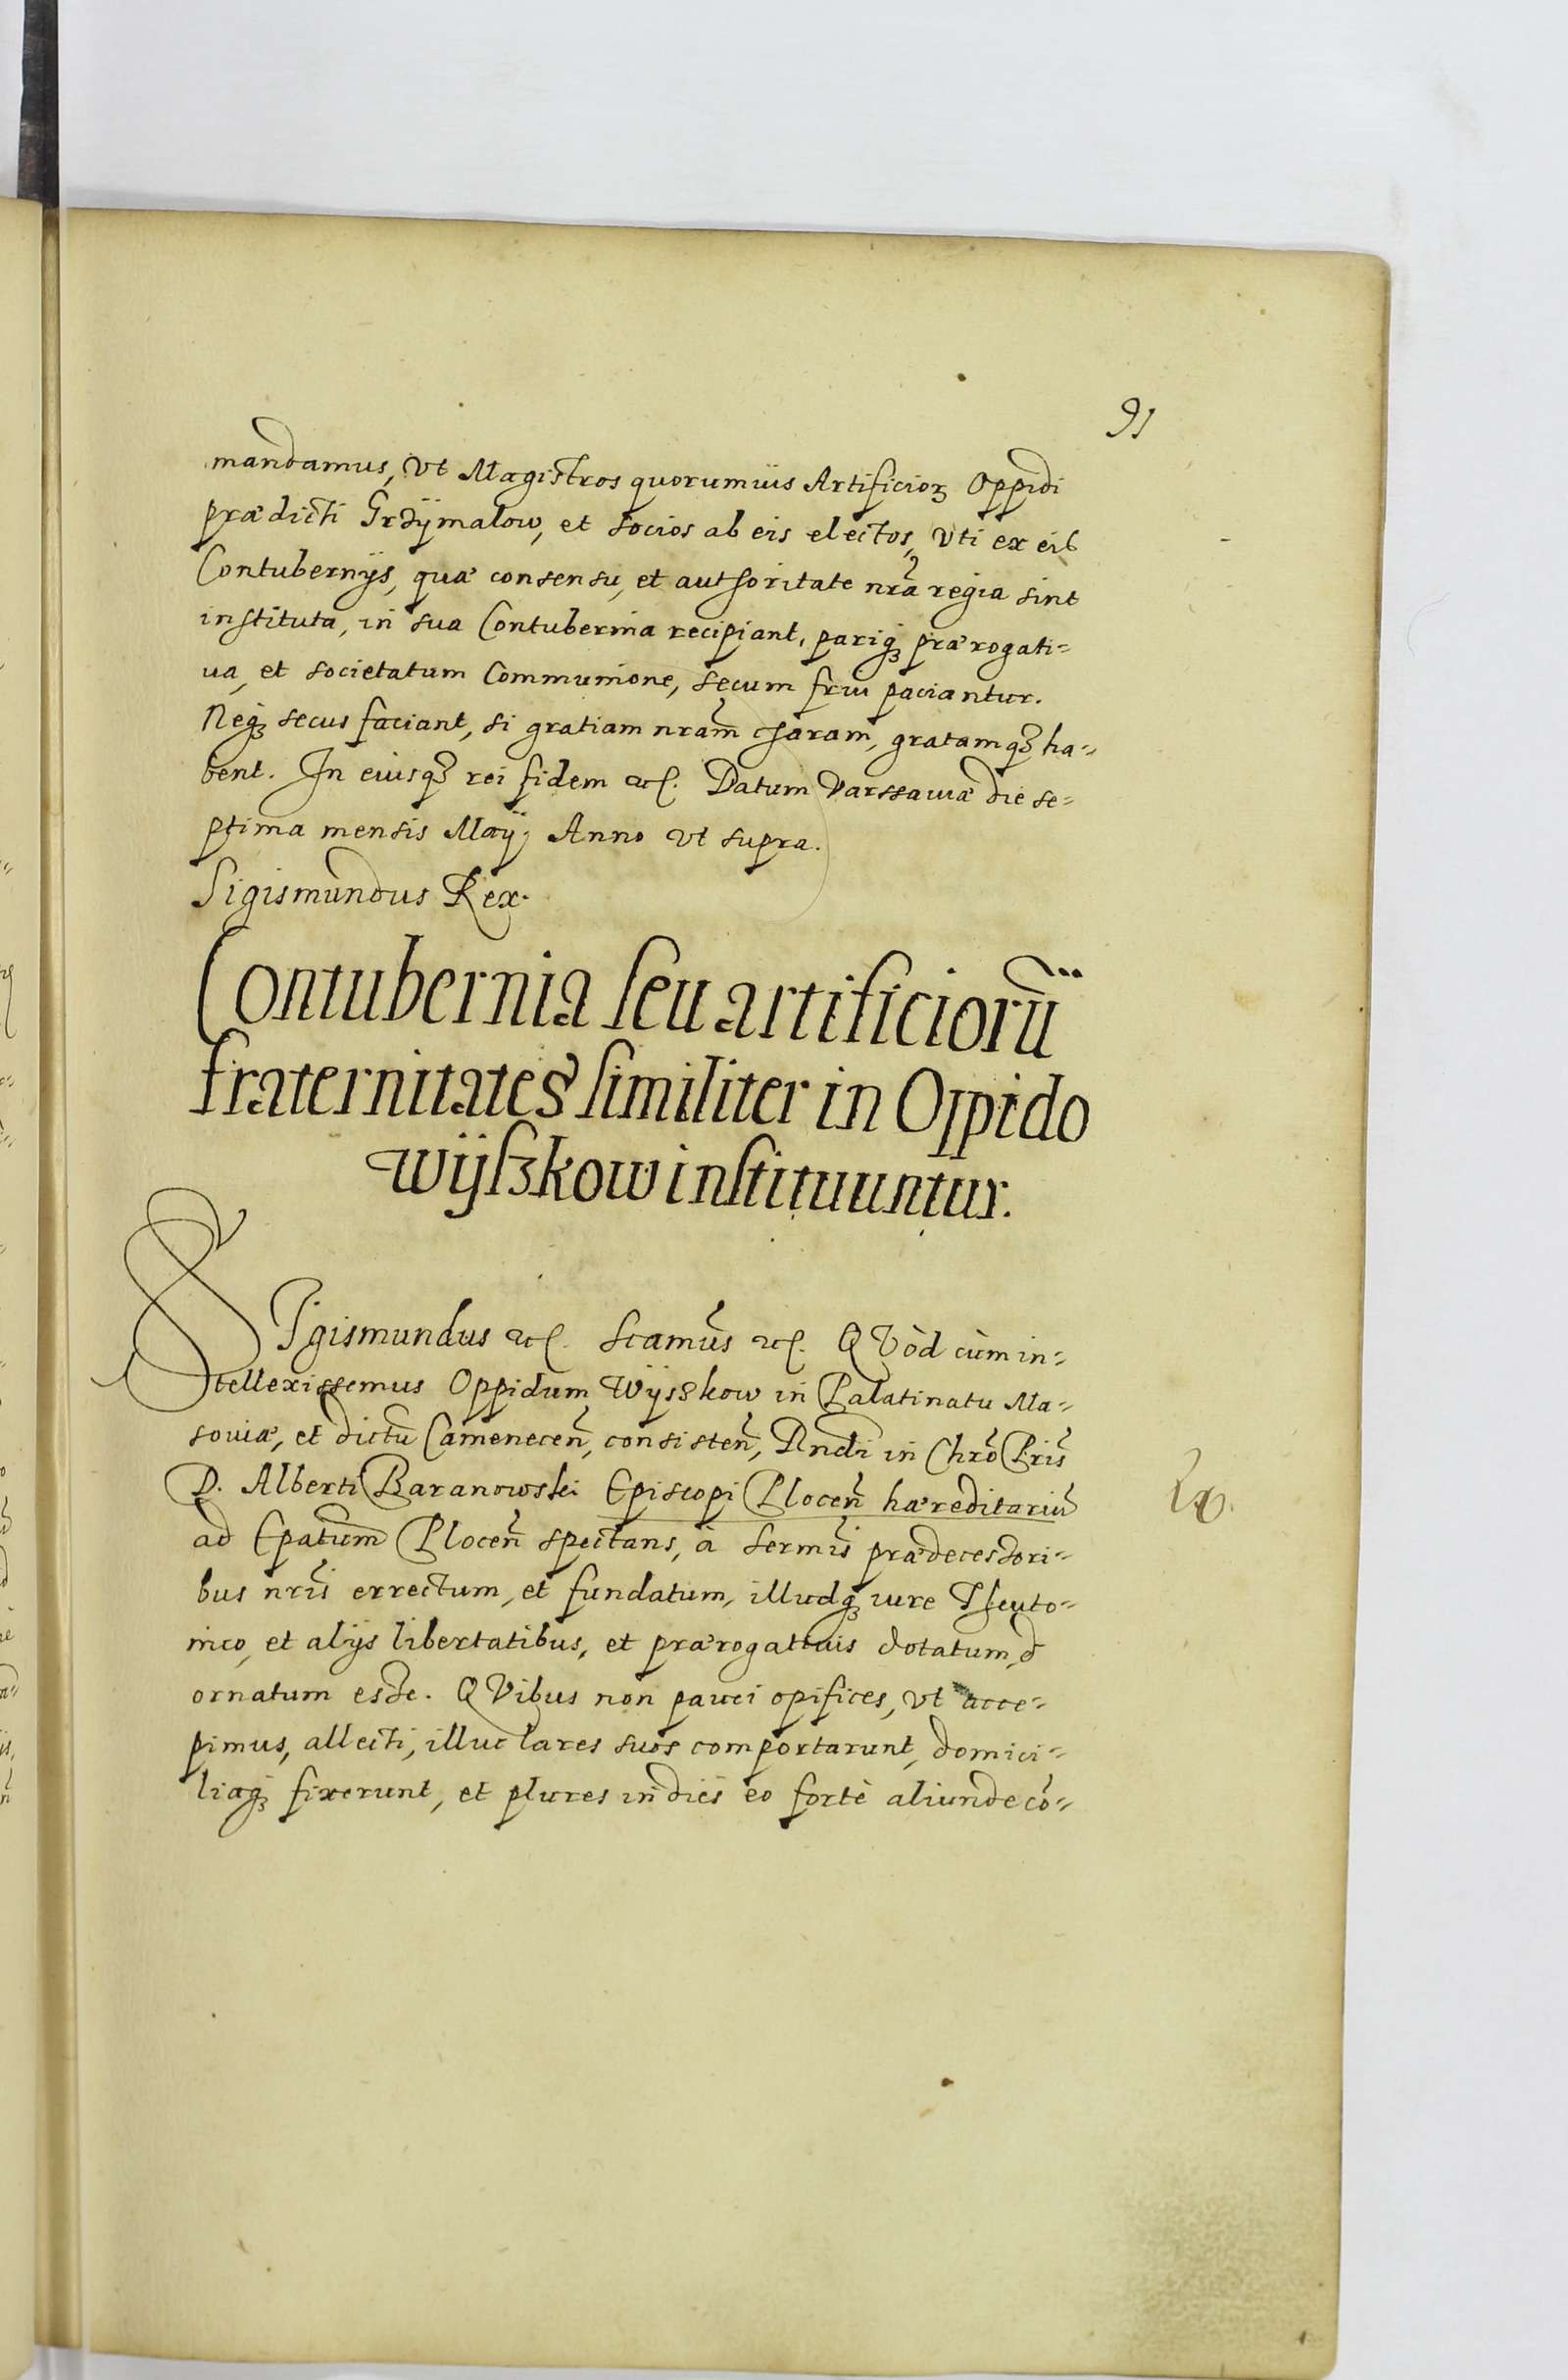 91
mandamus, vt Magistros quorumuis Artificioꝝ Oppidi
prædicti Grzÿmalow, et socios ab eis electos, vti ex eis
Contubernÿs, quæ consensu, et authoritate nrã regia sint
instituta, in sua Contubernia recipiant, pariqꝫ prærogati=
ua, et societatum Communione, secum frui paciantur.
Neqꝫ secus faciant, si gratiam nram̃ charam, gratamqꝫ ha=
bent. In eiusqꝫ rei fidem etc. Datum Varssauiæ die se=
ptima mensis Maÿ, Anno vt supra.
Sigismundus Rex.
Contubernia seu artificiorũ
fraternitates similiter in Oppido
Wÿszkow instituuntur.
SIgismundus etc. Scamus̃ etc. QVòd cùm in=
tellexissemus Oppidum Wÿszkow in Palatinatu Ma=
souiæ, et dictũ Camenecen̄, consisten̄, Rndi in Chrõ Pris̃
D. Alberti Baranowski Episcopi Plocen̄ hæreditariũ
ad Epatum̃ Plocen̄ spectans, à Sermis̃ prædecessori=
bus nris̃ errectum, et fundatum, illudqꝫ iure Theuto=
nico, et alÿs libertatibus, et prærogatiuis dotatum, &
ornatum esse. QVibus non pauci opifices, vt acce=
pimus, allecti, illuc lares suos comportarunt, domici=
liaqꝫ fixerunt, et plures in dies eo fortè aliunde cõ=